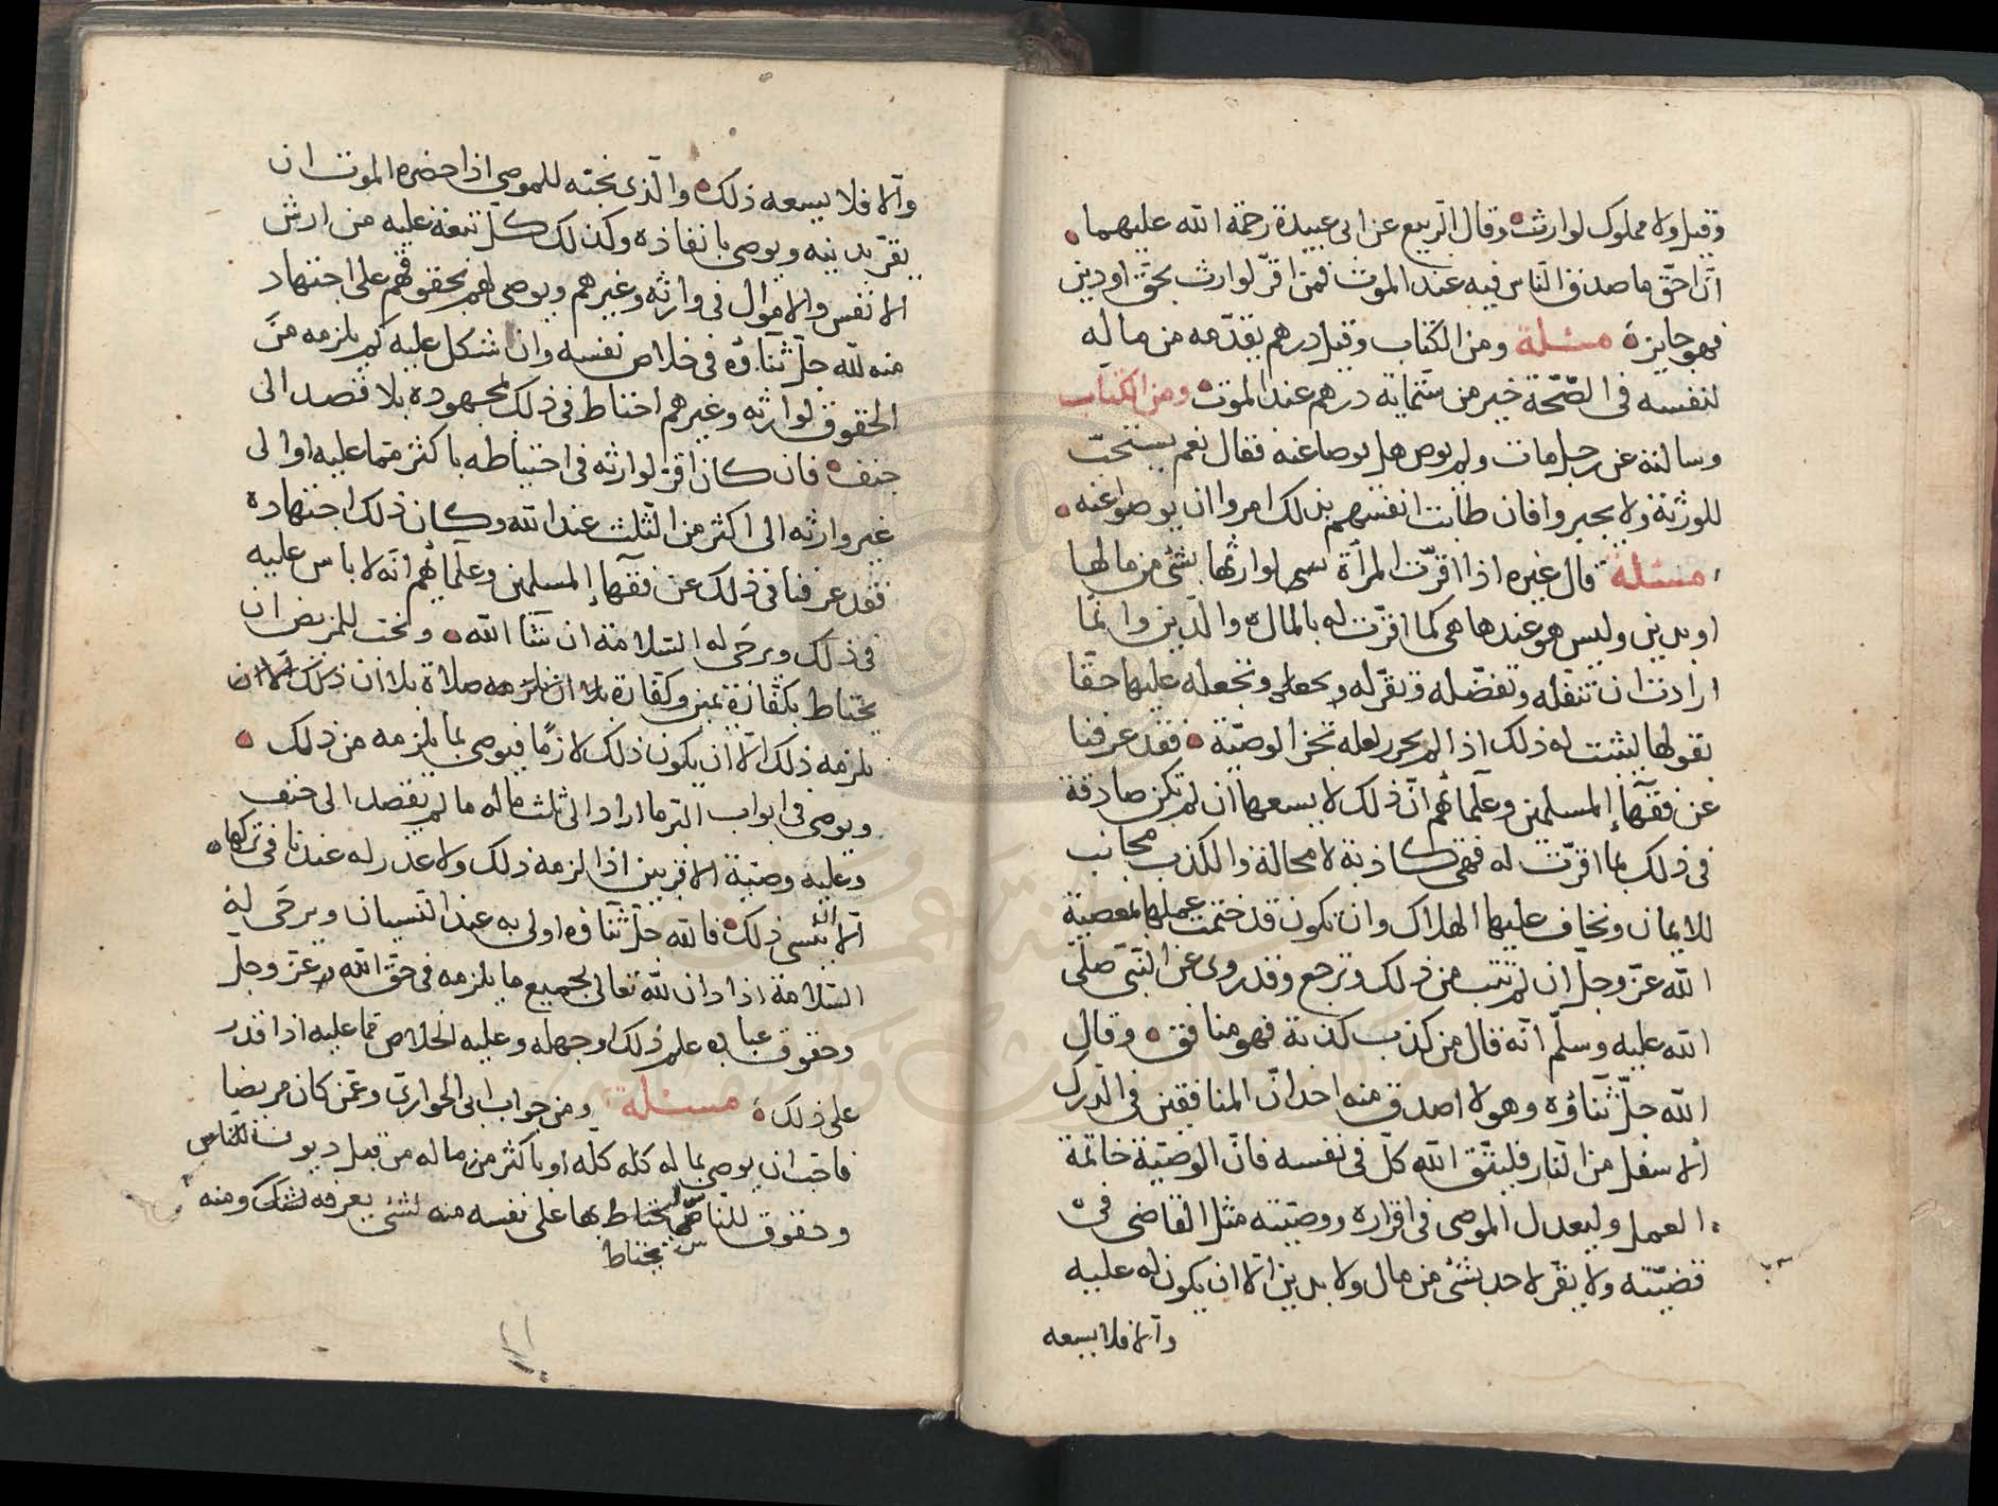 وقيل ولا مملوك لوارثه وقال الربيع عن ابي عبيدة رحمة الله عليهما
ان احق ما صدق الناس فيه عند الموت فمن اقر لوارث بحق او دين
فهو جايزه مسئلة ومن الكتاب وقيل درهم يقدمه من ماله
لنفسه في الصحة خير من ستماية درهم عند الموت ومن الكتاب
وسالته عن رجل مات ولم يوص هل يوصا عنه فقال نعم يستحب
للورثة ولا يجبروا فان طابت انفسهم بذلك امروا ان يوصوا عنه
مسئلة قال غيره اذا اقرت المرأة لوارثها بشئ من مالها
او بدين وليس هو عندها هي كما اقرت له بالمال والدين وانما
ارادت ان تنفله وتفضله وتقر له وتجعله عليها حقا
بقولها ليثبت له ذلك اذا لم يجز لعله تجز الوصية فقد عرفنا
عن فقهآء المسلمين وعلمائهم ان ذلك لا يسعها ان لم تكن صادقة
في ذلك بما اقرت له فهي كاذبة لا محالة والكذب مجانب
للايمان ونخاف عليها الهلاك وان تكون قد ختمت عملها بمعصية
الله عز وجل ان لم تتب من ذلك وترجع وقد روي عن النبي صلى
الله عليه وسلم انه قال من كذب كذبة فهو منافق وقال
الله جل ثناؤه وهو لا اصدق منه احد ان المنافقين في الدرك
الاسفل من النار فليتق الله كل في نفسه فان الوصية خاتمة
العمل وليعدل الموصي في اقراره ووصيته مثل القاضي في
قضيته ولا يقر لاحد بشئ من مال ولا بدين الا ان يكون له عليه
والا فلا يسعه
والا فلا يسعه ذلك والذي نحبه للموصي اذا حضره الموت ان
يقر بدينه ويوصي بانفاذه وكذلك كل تبعة عليه من ارش
الانفس والاموال في وارثه وغيرهم ويوصي لهم بحقوقهم على اجتهاد
منه لله جل ثناؤه في خلاص نفسه وان شكل عليه كم يلزمه من
الحقوق لوارثه وغيرهم احتاط في ذلك بمجهوده بلا قصد الى
حنف فان كان اقر لوارثه في احتياطه باكثر مما عليه او الى
غير وارثه الى اكثر من الثلث عند الله وكان ذلك اجتهاده
فقد عرفنا في ذلك عن فقهآء المسلمين وعلمائهم انه لا باس عليه
في ذلك ويرجى له السلامة ان شا الله ونحب للمريض ان
يحتاط بكفارة يمين وكفارة صلاة بلا ان
يلزمه ذلك الا ان يكون ذلك لازما فيوصي بما يلزمه من ذلك
ويوصي في ابواب البر ما اراد الى ثلث ماله ما لم يقصد الى حنف
وعليه وصية الاقربين اذا لزمه ذلك ولا عذر له عندنا في تركها
الا ان ينسى ذلك فالله جل ثناؤه اولى به عند النسيان ويرجى له
السلامة اذا دان لله تعالى بجميع ما يلزمه في حق الله عز وجل
وحقوق عباده علم ذلك او جهله وعليه الخلاص مما عليه اذا قدر
على ذلك مسئلة ومن جواب ابي الحواري وعمن كان مريضا
فاحب ان يوصي بماله كله كله او باكثر من ماله من قبل ديون للناس
وحقوق للناس يحتاط بها على نفسه منه لشئ يعرفه لشك ومنه
يحتاط